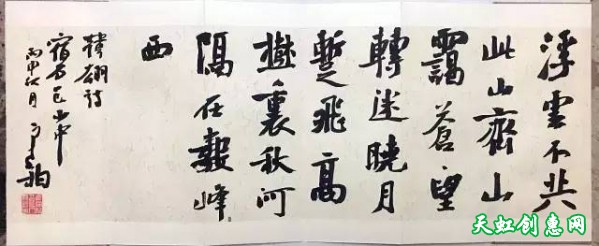 浮雲不共
此山齊山
靄蒼望
轉迷曉月
暫飛高
樹裏秋河
隔在數峰
西
韓翃詩
宿石邑山中
丙申秋月
天虹创惠网